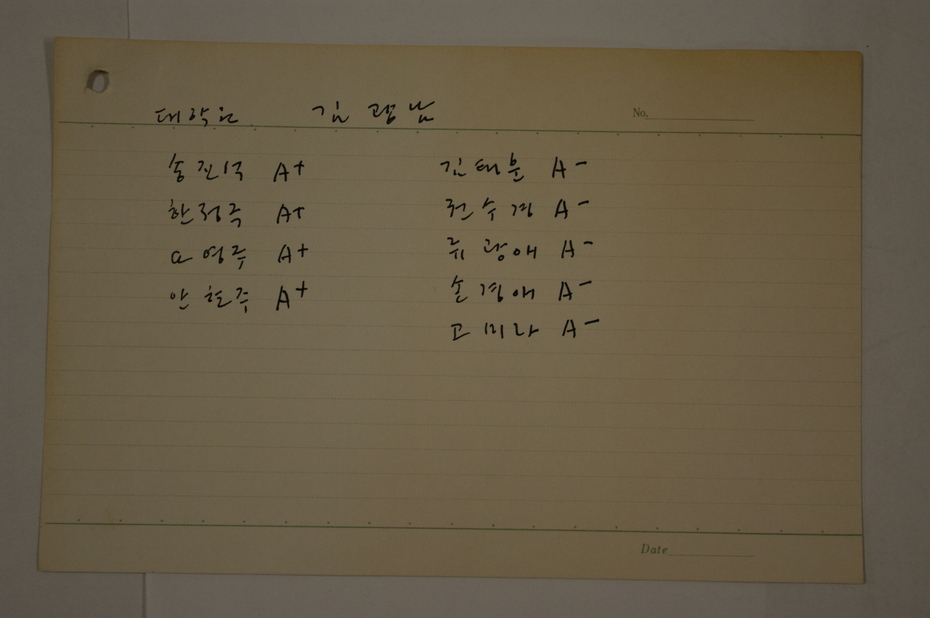 대학원 김광남
No.
송진석 A+
한정국 A+
a 영주 A+
안현주 A+
김태훈 A-
전수경 A-
류광애 A-
손경애 A-
고미라 A-
Date